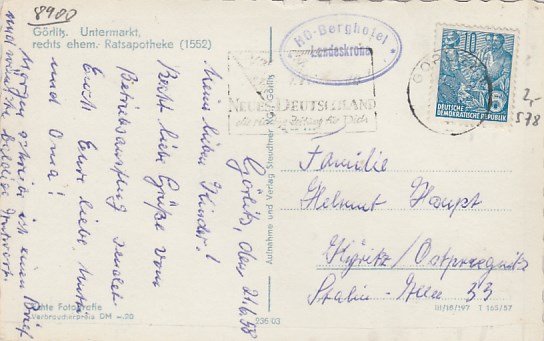 8900
Görlitz. Untermarkt,
rechts ehem. Ratsapotheke (1552)
Görlitz, den 21.6.58
Meine lieben Kinder!
Recht liebe Grüße vom
Betriebsausflug sendet
Euch Eure liebe Mutti
und Oma!
Morgen schreibe ich einen Brief
und wünsche baldige Antwort.
Echte Fotografie
Verbraucherpreis DM -.20
236 03
Aufnahme und Verlag Steudtner KG, Görlitz
HO-Berghotel
Landeskrone
NEUES DEUTSCHLAND
die richtige Zeitung für Dich
DEUTSCHE
DEMOKRATISCHE REPUBLIK
2,-
578
Familie
Helmut Haupt
Kyritz/Ostpregnitz
Stalin-Allee 33
III/18/197 T 165/57